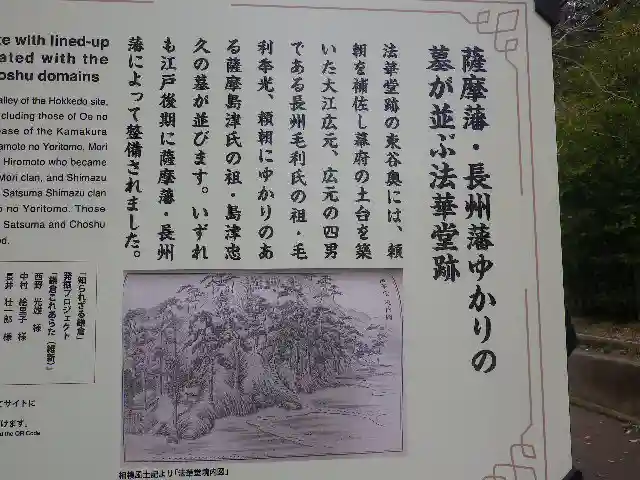 薩摩藩・長州藩ゆかりの
墓が並ぶ法華堂跡
法華堂跡の東谷奥には、頼
朝を補佐し幕府の土台を築
いた大江広元、広元の四男
である長州毛利氏の祖・毛
利季光、頼朝にゆかりのあ
る薩摩島津氏の祖・島津忠
久の墓が並びます。いずれ
も江戸後期に薩摩藩・長州
藩によって整備されました。
te with lined-up
ated with the
oshu domains
alley of the Hokkedo site,
cluding those of Oe no
ease of the Kamakura
amoto no Yoritomo, Mori
Hiromoto who became
Mori clan, and Shimazu
Satsuma Shimazu clan
o no Yoritomo. Those
Satsuma and Choshu
d.
「知られざる鎌倉」
発掘プロジェクト
「鎌倉これあらた(維新)」
西野 光雄 様
中村 絵里子 様
長井 壮一郎 様
てサイトに
けます。
d the QR Code
相模風土記より「法華堂境内図」